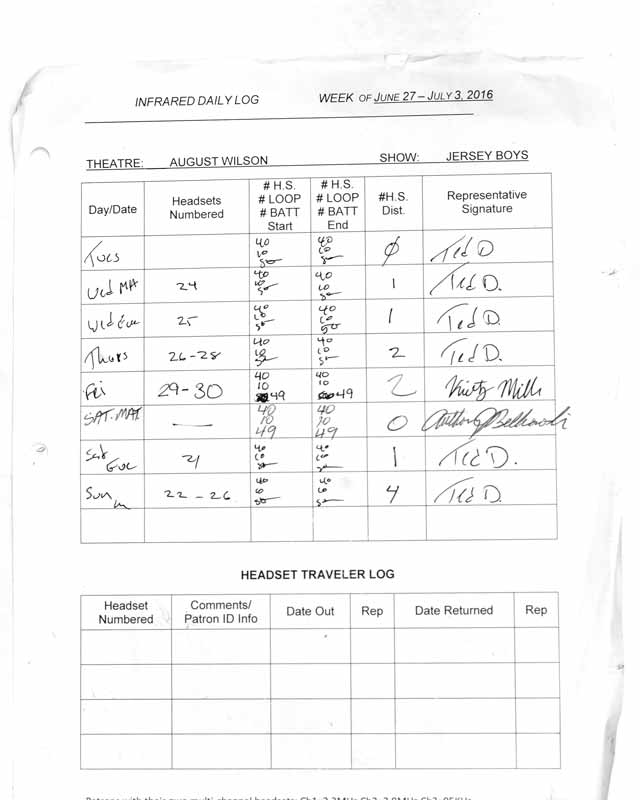 INFRARED DAILY LOG WEEK OF JUNE 27 – JULY 3, 2016
THEATRE: AUGUST WILSON SHOW: JERSEY BOYS
Day/Date
Headsets
Numbered
# H.S.
# LOOP
# BATT
Start
# H.S.
# LOOP
# BATT
End
#H.S.
Dist.
Representative
Signature
Tues
40
10
50
40
10
50
0
Ted D
Wed MA
24
40
10
50
40
10
50
1
Ted D.
Wed Eve
25
40
10
50
40
10
50
1
Ted D.
Thurs
26-28
40
10
50
40
10
50
2
Ted D.
Fri
29-30
40
10
49
40
10
49
2
Mills
SAT. MAT
—
40
10
49
40
10
49
0
Anthony
Sat
Eve
21
40
10
50
40
10
50
1
Ted D.
Sun
22-26
40
10
50
40
10
50
4
Ted D.
HEADSET TRAVELER LOG
Headset
Numbered
Comments/
Patron ID Info
Date Out
Rep
Date Returned
Rep